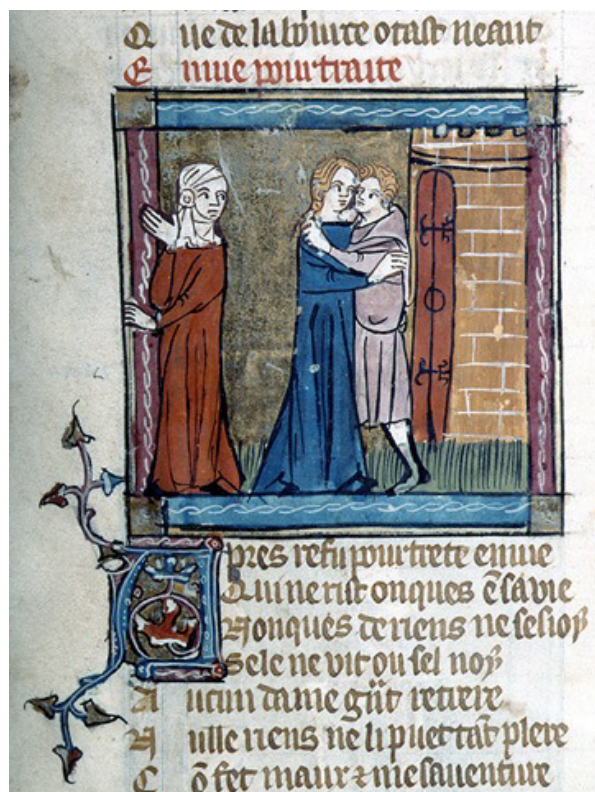 Que de la loutre otast neant
Enuie pourtraite
Apres refu pourtrete enuie
Qui ne rist onques ē sa vie
Nonques de riens ne sesioÿ
Sele ne vit ou sel noÿ
Aucun dame gñt retrere
Nulle riens ne li puet tāt plere
Cō fet maux ⁊ mesauenture